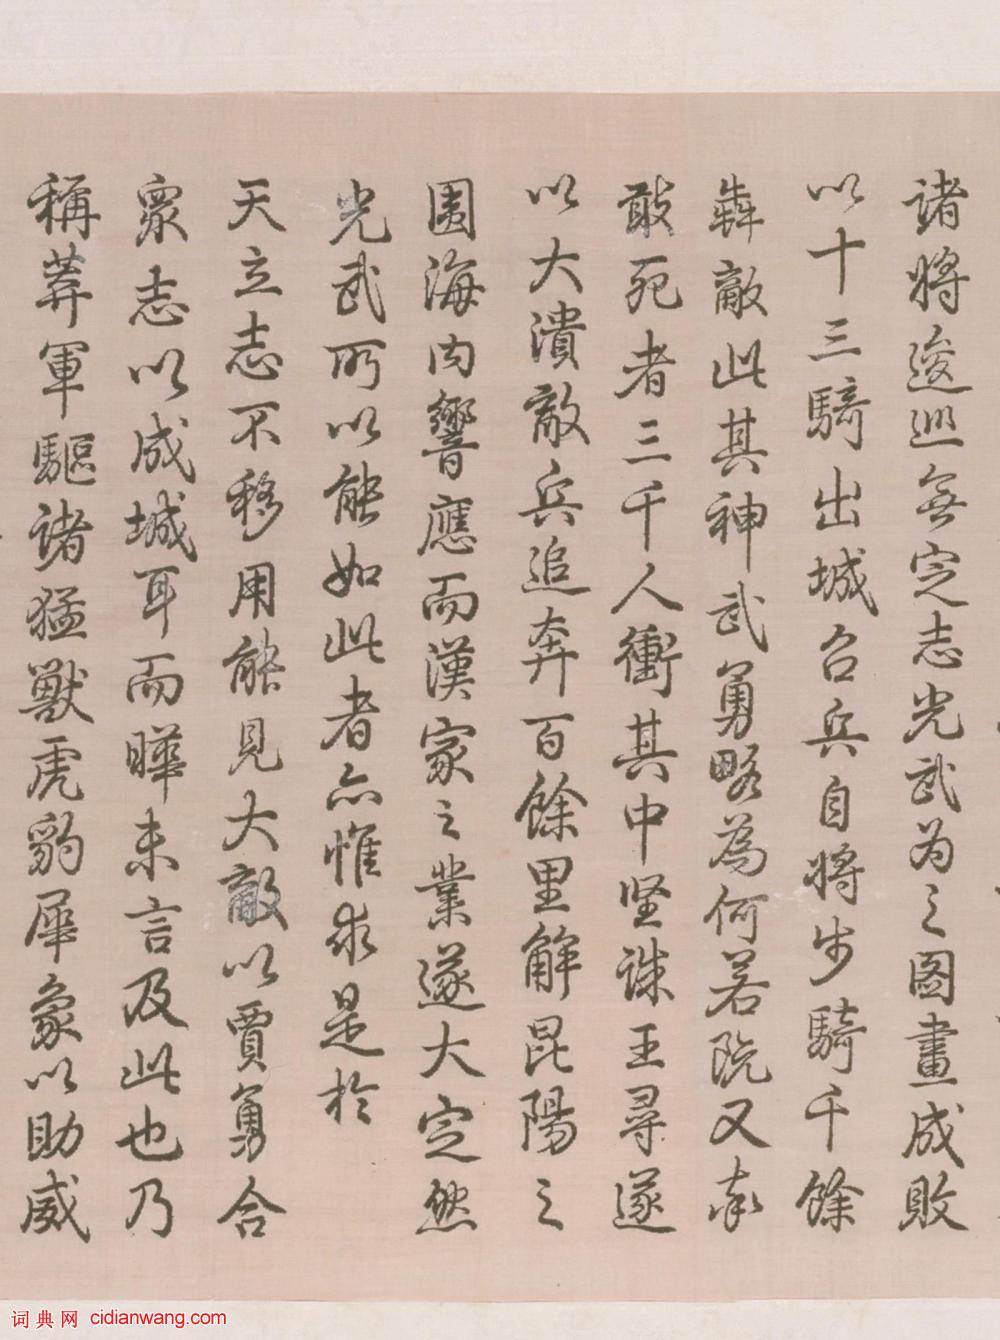 諸將逡巡無定志光武为之圖畫成敗
以十三騎出城召兵自將步騎千餘
犇敵此其神武勇略為何若既又率
敢死者三千人衝其中坚誅王尋遂
以大潰敵兵追奔百餘里解昆陽之
圍海内響應而漢家之業遂大定然
光武所以能如此者亦惟求是於
天立志不移用能見大敵以賈勇合
衆志以成城耳而曄未言及此也乃
稱莽軍驅諸猛獸虎豹犀象以助威
词典网 cidianwang.com